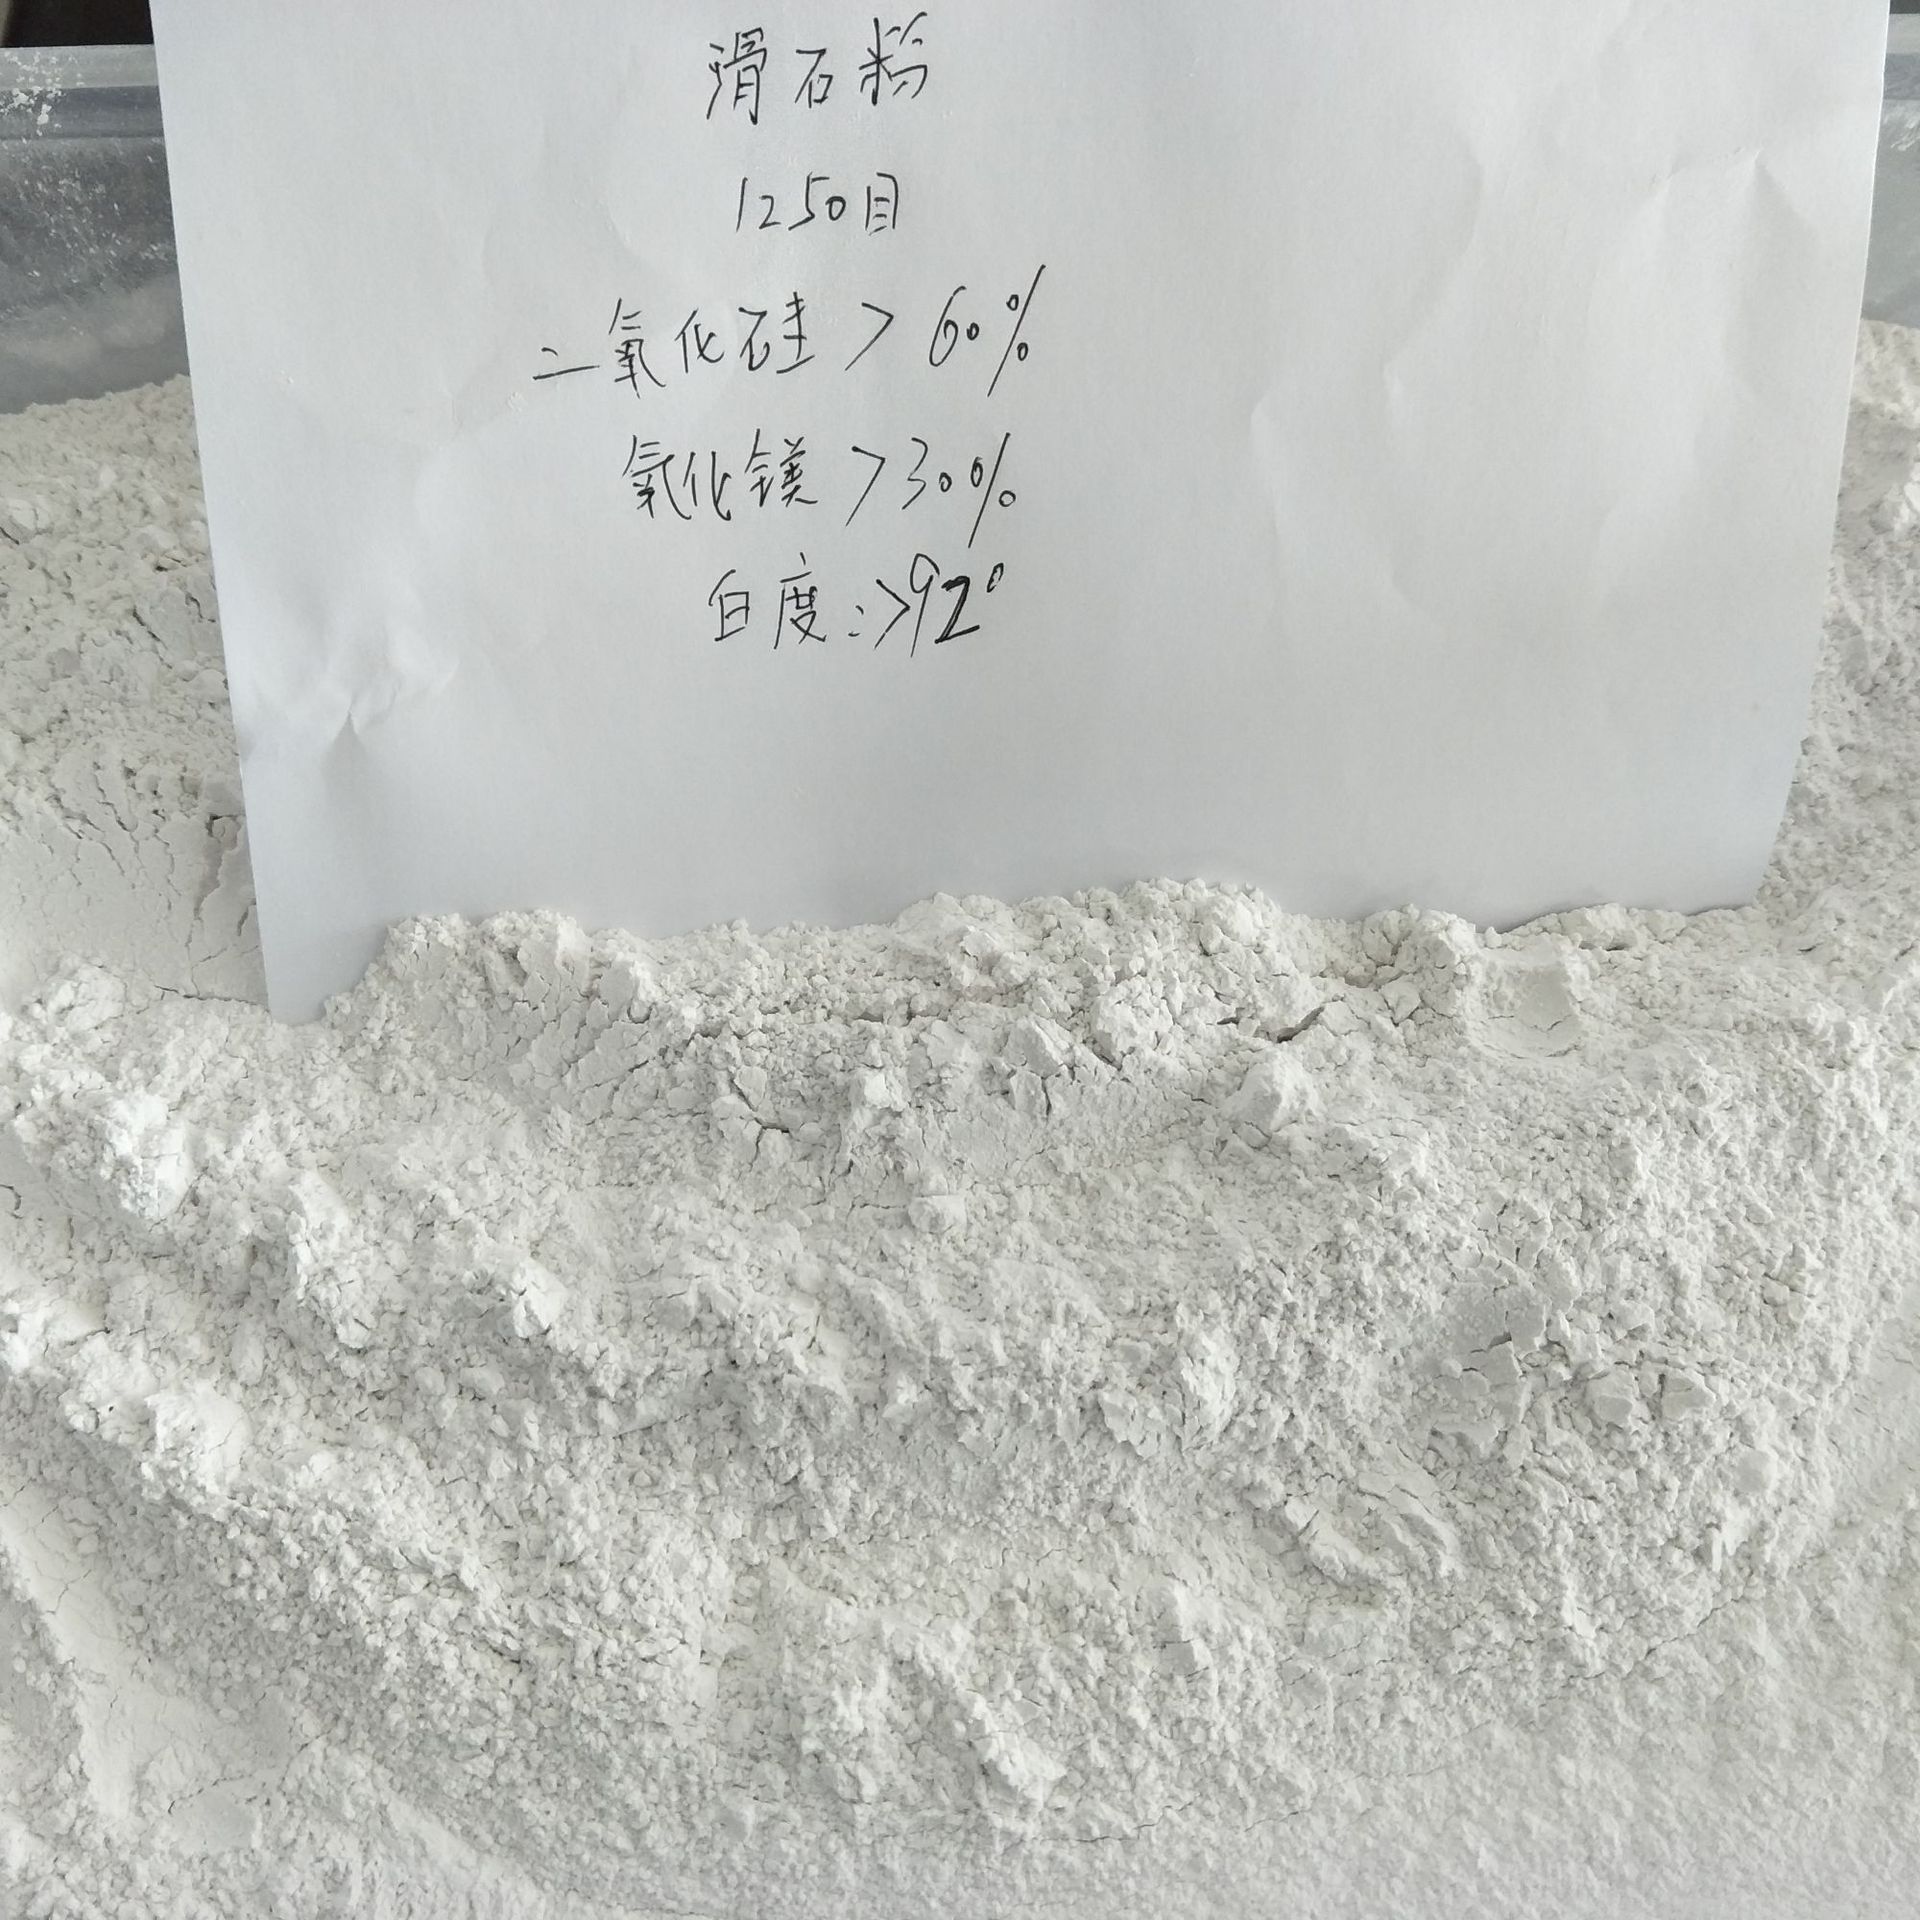 滑石粉
1250目
二氧化硅>60%
氧化镁>30%
白度:>92°